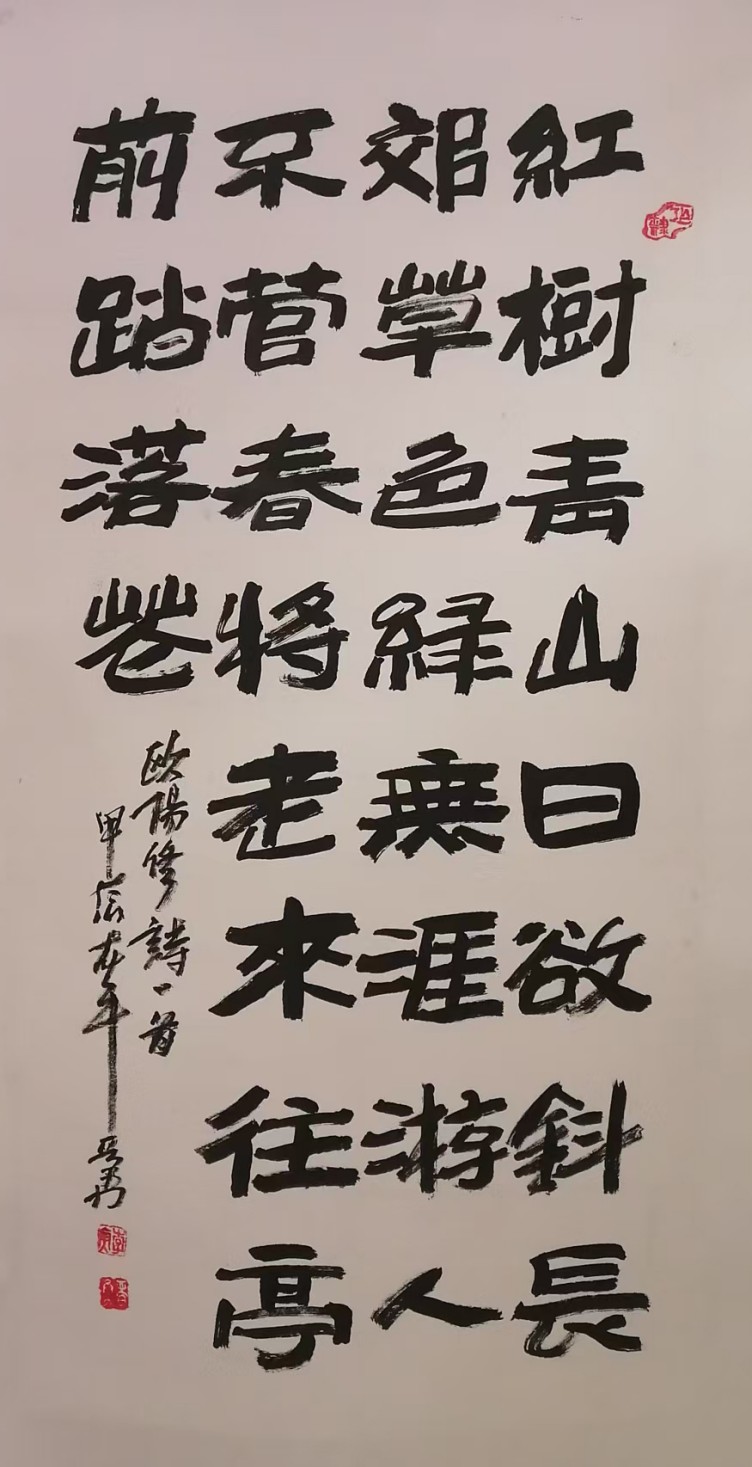 紅樹青山日欲斜長
郊草色緑無涯游人
不管春將老來往亭
前踏落花
歐陽修詩一首
甲辰年